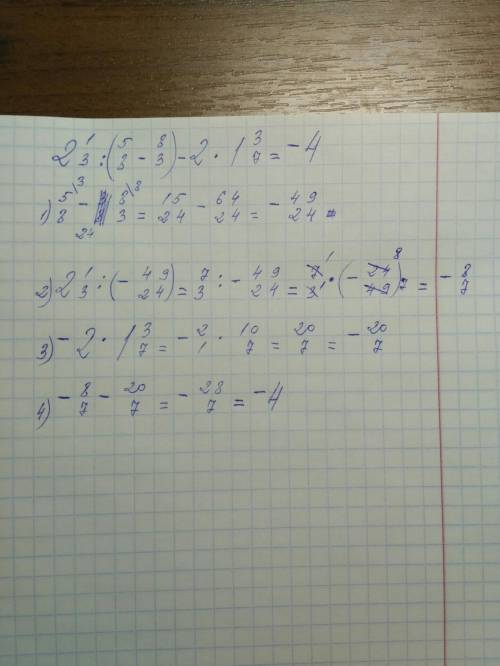 2 1/3 : (5/8 - 8/3) - 2 · 1 3/7 = -4
1) 5\3/8 - 8\8/3 = 15/24 - 64/24 = - 49/24
24
2) 2 1/3 : (- 49/24) = 7/3 : - 49/24 = 7/3 1 1 · (- 24/49) 8 7 = - 8/7
3) - 2 · 1 3/7 = - 2/1 · 10/7 = 20/7 = - 20/7
4) - 8/7 - 20/7 = - 28/7 = -4